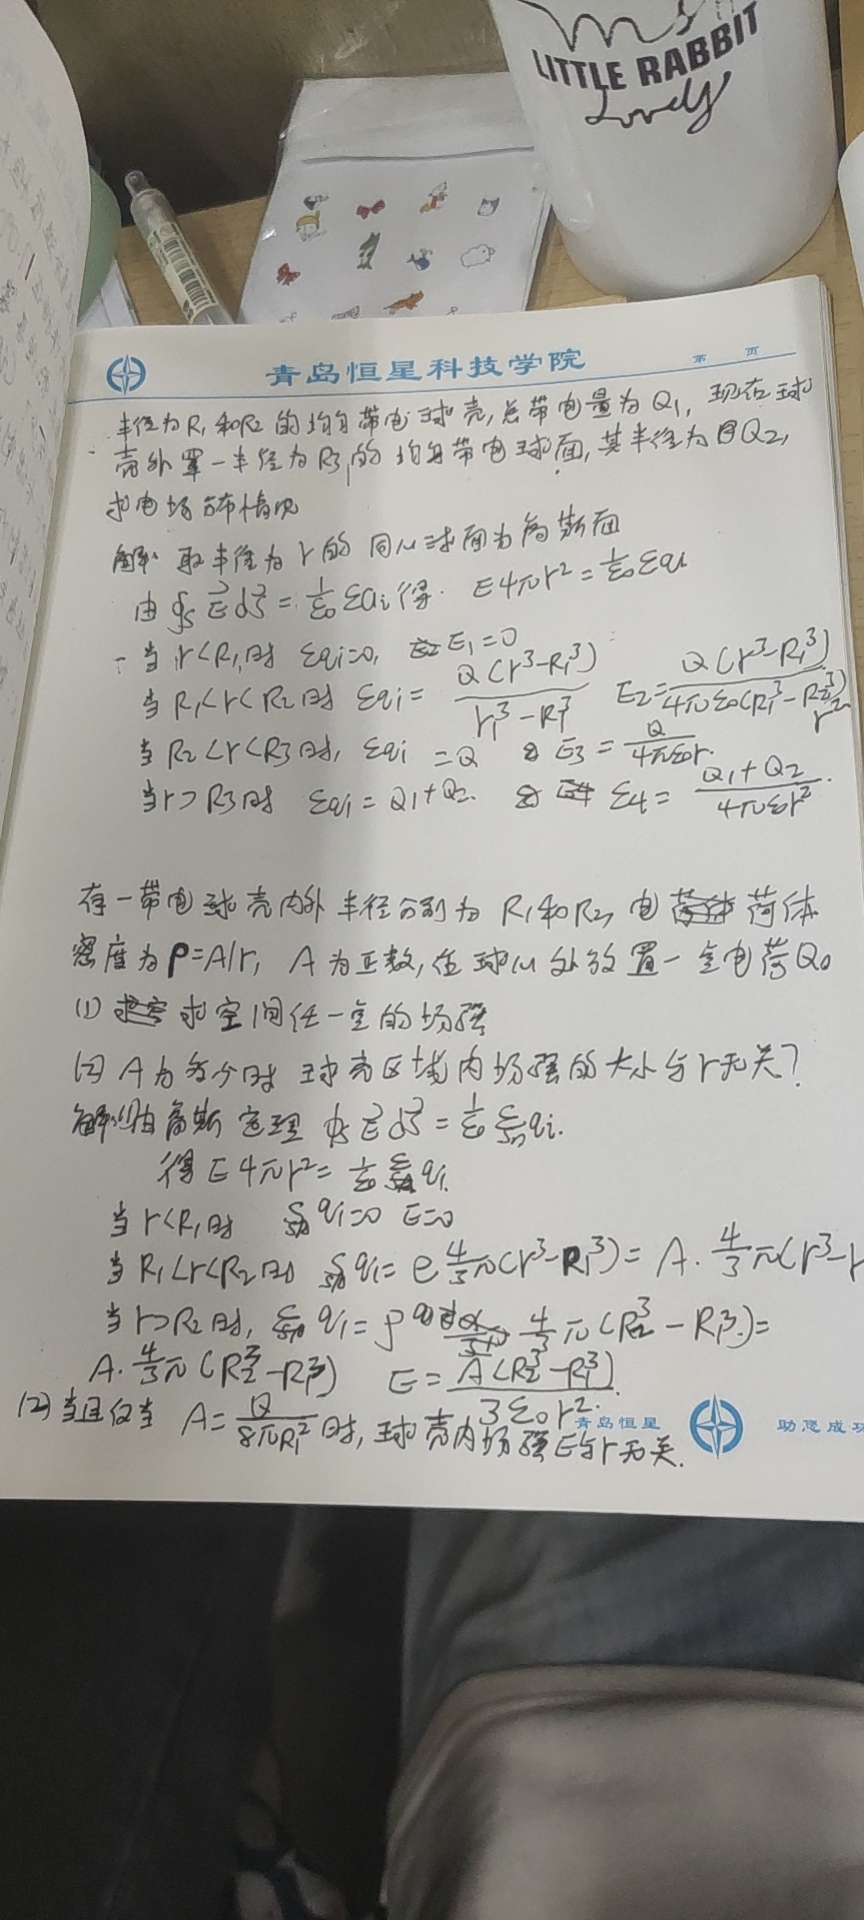 LITTLE RABBIT
Lovely
青岛恒星科技学院
第 页
半径为R₁和R₂的均匀带电球壳,总带电量为Q₁, 现在球
壳外罩一半径为R3,的均匀带电球面,其半径为Q2,
求电场分布情况
解: 取半径为r的同心球面为高斯面
由∮s E⃗ dS⃗ = 1/ε0 Σqi 得. E4πr² = 1/ε0 Σqi
当r<R₁时 Σqi=0, E₁=0
当R₁<r<R₂时 Σqi = Q(r³-R₁³)/(r₁³-R₁³) E₂= Q(r³-R₁³)/4πε0(R₁³-R₂³)r²
当R₂<r<R3时, Σqi =Q E3 = Q/4πε0r.
当r>R3时 Σqi = Q₁+Q₂. E4= Q₁+Q₂/4πε0r².
有一带电球壳内外半径分别为R₁和R₂, 电荷体
密度为ρ=A/r, A为正数,在球心处放置一点电荷Q0
(1) 求空间任一点的场强
(2) A为多少时 球壳区域内场强的大小与r无关?
解:(1)由高斯定理 ∮s E⃗ dS⃗ = 1/ε0 Σqi.
得E4πr² = 1/ε0 Σqi
当r<R₁时 Σqi=0 E=0
当R₁<r<R₂时 Σqi= ρ 4/3π(r³-R₁³)= A. 4/3π(r³-r
当r>R₂时, Σqi = ρ 4/3 π(R₂³-R₁³.)=
A. 4/3π(R₂³-R₁³) E= A(R₂³-R₁³)/3ε0r².
(2) 当且仅当 A= Q/8πR₁² 时, 球壳内场强E与r无关.
青岛恒星
助您成功